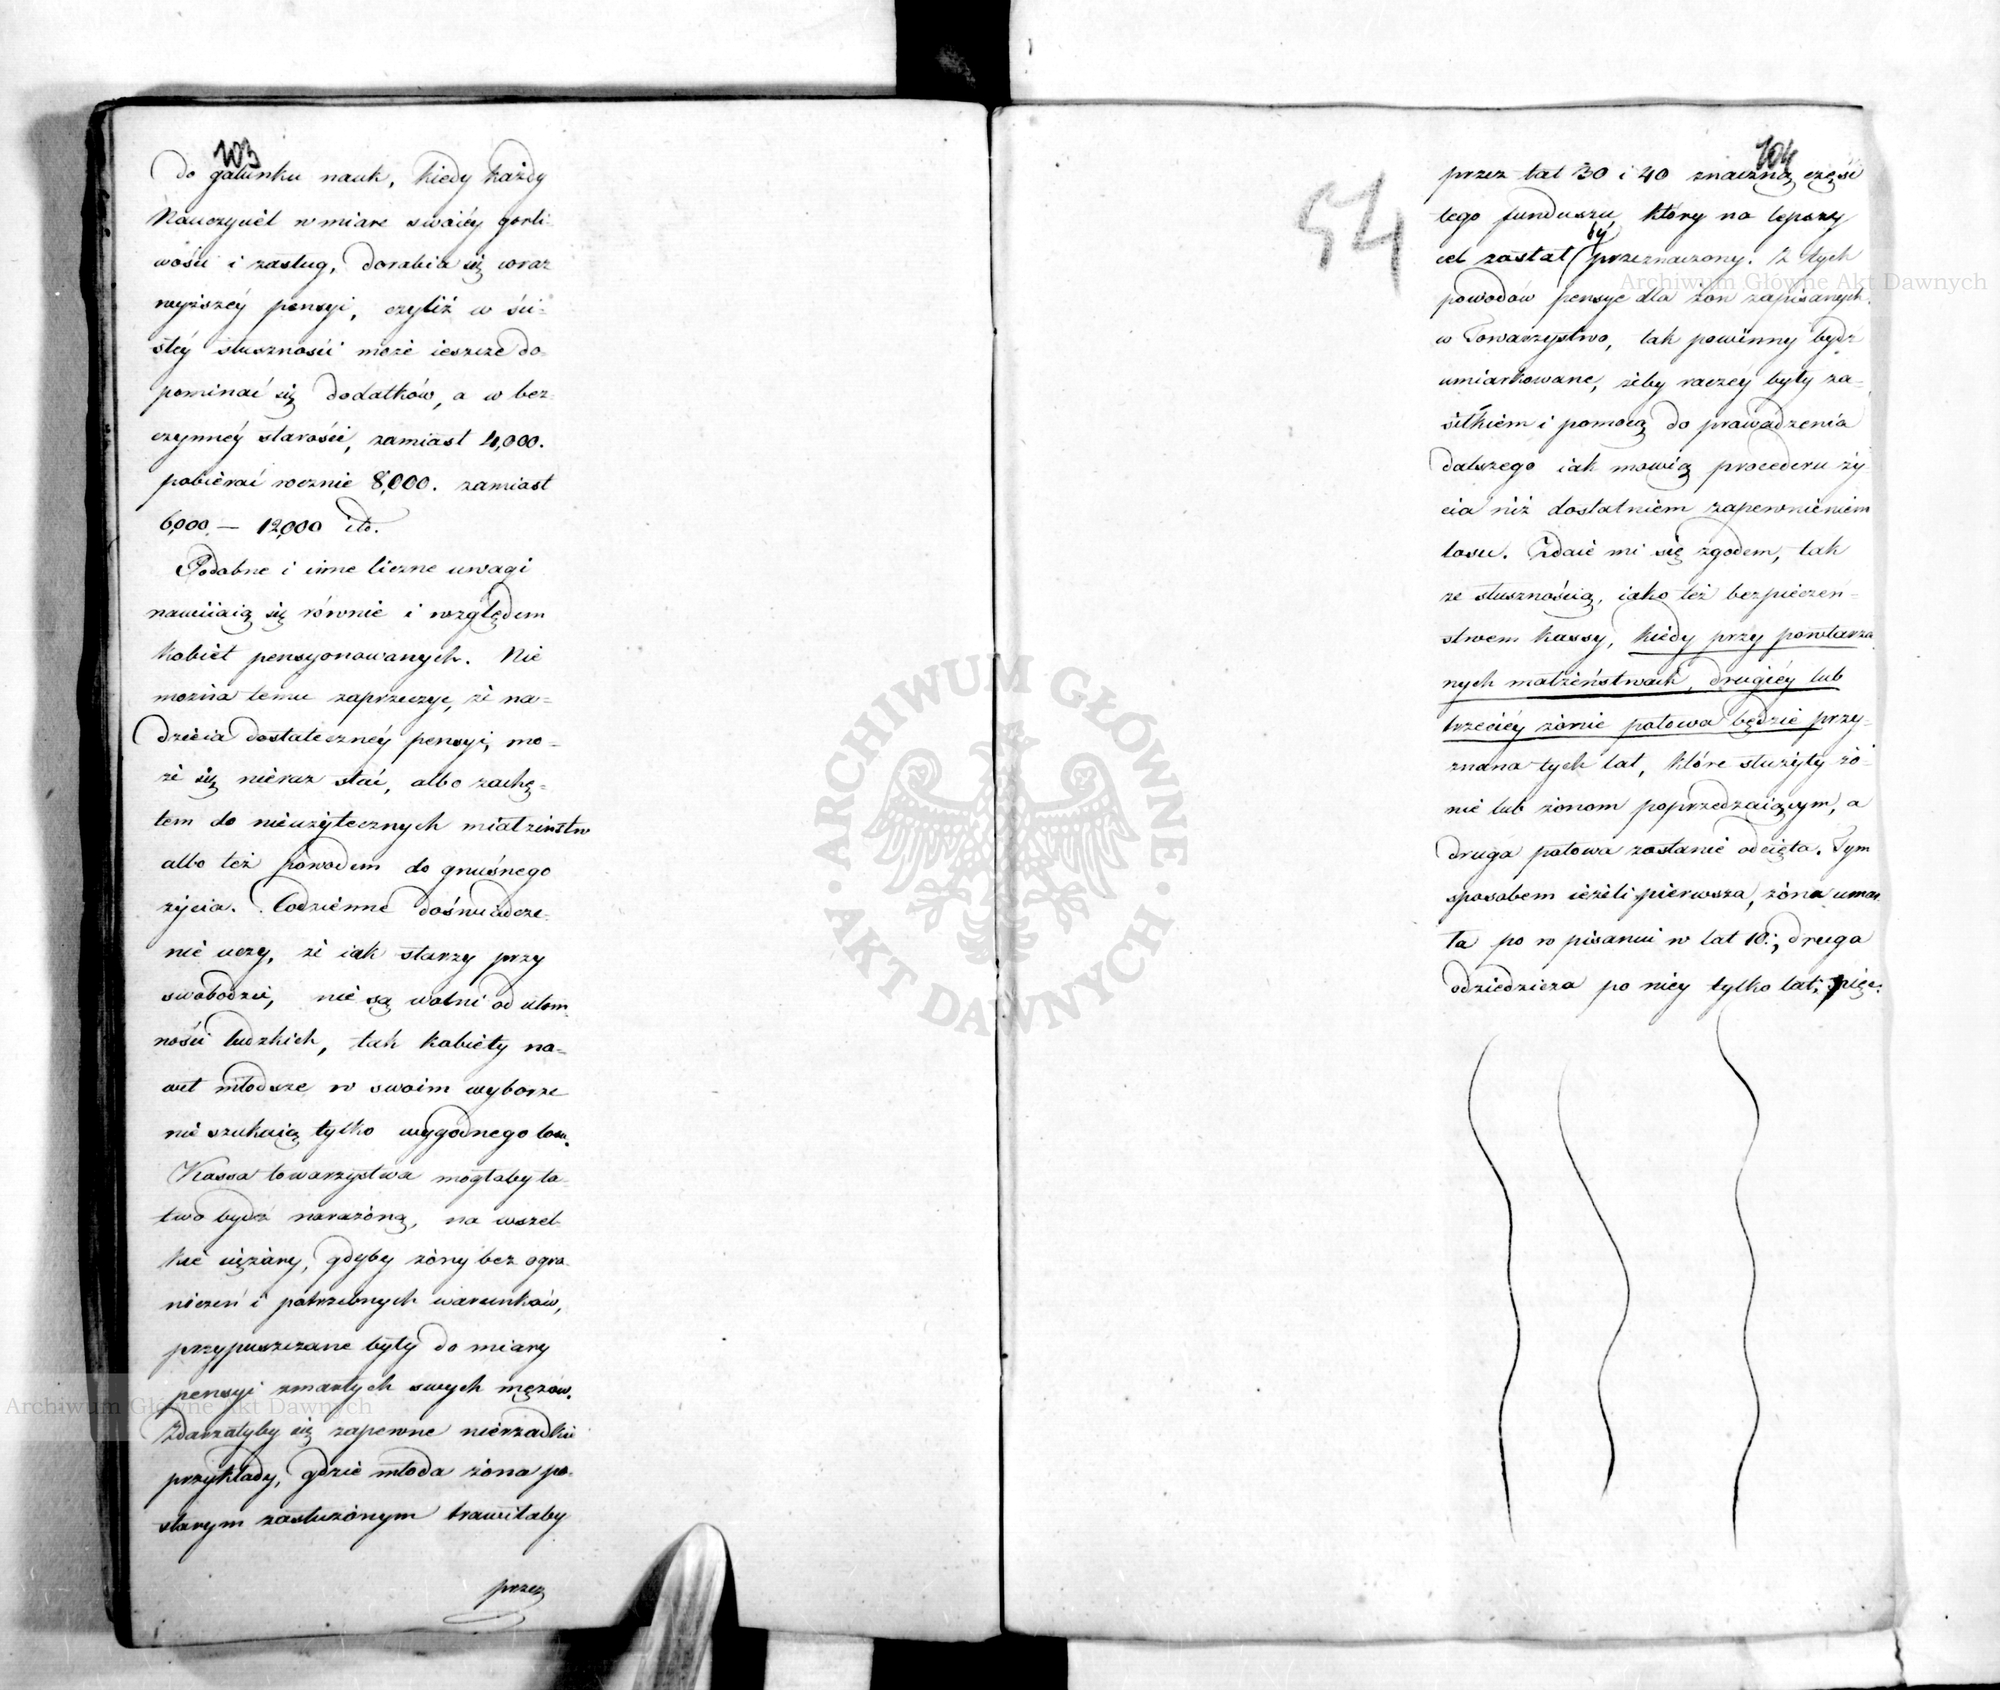 103
do gatunku nauk, kiedy każdy
Nauczyciel w miarę swoiéy gorli=
wości i zasług, dorabia się coraz
wyższéy pensyi, czyliż w ści=
słéy słuszności może ieszcze do=
pominać się dodatków, a w bez=
czynnéy starości, zamiast 4,000.
pobierać rocznie 8,000. zamiast
6,000 — 12,000 itd.
Podobne i inne liczne uwagi
nawiiaią się równie i względem
kobiet pensyonowanych. Nie
można temu zaprzeczyć, że na=
dzieia dostatecznéy pensyi, mo=
że się nieraz stać, albo zachę=
tem do nieużytecznych małżeństw
albo też powodem do gnuśnego
życia. Codzienne doświadcze=
nie uczy, że iak starzy przy
swobodzie, nie są wolni od ułom=
ności ludzkich, tak kobiety na=
wet młodsze w swoim wyborze
nie szukaią tylko wygodnego losu.
Kassa towarzystwa mogłaby ła=
two bydź narażoną, na wszel=
kie ciężary, gdyby żony bez ogra=
niczeń i potrzebnych warunków,
przypuszczane były do miary
pensyi zmarłych swych mężów.
Zdarzałyby się zapewne nierzadkie
przykłady, gdzie młoda żona po=
starym zasłużonym trawiłaby
przez
104
54
przez lat 30 i 40 znaczną część
tego funduszu, który na lepszy
cel został by przeznaczony. Z tych
powodów pensye dla żon zapisanych
w Towarzystwo, tak powinny bydź
umiarkowane, żeby raczey były za=
siłkiem i pomocą do prowadzenia
dalszego iak mowią procederu ży=
cia niż dostatniem zapewnieniem
losu. Zdaie mi się zgodem, tak
ze słusznością, iako też bezpieczeń=
stwem kassy, kiedy przy powtarza
nych małżeństwach, drugiéy lub
trzeciéy żonie połowa będzie przy=
znana tych lat, które służyły żo=
nie lub żonom poprzedzaiącym, a
druga połowa zostanie odcięta. Tym
sposobem ieżeli pierwsza, żona umar
ła po wpisaniu w lat 10., druga
odziedzicza po niey tylko lat, pięć.
Archiwum Główne Akt Dawnych
Archiwum Główne Akt Dawnych
ARCHIWUM GŁÓWNE AKT DAWNYCH